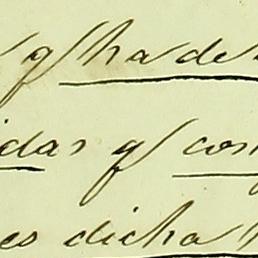 q ha de
idas q con
es dicha